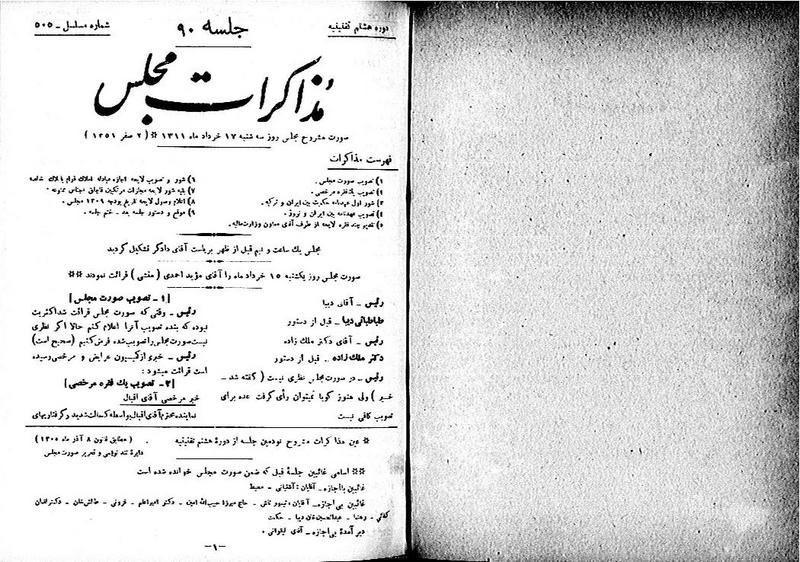 دوره هشتم تقنینیه
جلسه ۹۰
شماره مسلسل ـ ۵۰۵
مذاکرات مجلس
صورت مشروح مجلس روز سه شنبه ۱۷ خرداد ماه ۱۳۱۱ * (۲ صفر ۱۳۵۱)
فهرست مذاکرات
۱) تصویب صورت مجلس.
۲) تصویب یک فقره مرخصی.
۳) شور اول عهدنامه حکمیت بین ایران و ترکیه.
۴) تصویب عهدنامه بین ایران و نروژ.
۵) تقدیم چند فقره لایحه از طرف آقای معاون وزارت مالیه.
۶) شور و تصویب لایحه اجازه مبادله املاک قوام با املاک خالصه
۷) بقیه شور لایحه مجازات مرتکبین قاچاق اجناس ممنوعه.
۸) اعلام وصول لایحه تفریغ بودجه ۱۳۰۹ مجلس.
۹) موقع و دستور جلسه بعد ـ ختم جلسه.
مجلس یک ساعت و نیم قبل از ظهر بریاست آقای دادگر تشکیل گردید
صورت مجلس روز یکشنبه ۱۵ خرداد ماه را آقای مؤید احمدی (منشی) قرائت نمودند **
رئیس ـ آقای دیبا
طباطبائی دیبا ـ قبل از دستور
رئیس ـ آقای دکتر ملک زاده
دکتر ملک زاده ـ قبل از دستور
رئیس ـ در صورت مجلس نظری نیست (گفته شد ـ
خیر) ولی هنوز گویا نمیتوان رأی گرفت عده برای
تصویب کافی نیست
[۱ ـ تصویب صورت مجلس]
رئیس ـ وقتی که صورت مجلس قرائت شد اکثریت
نبوده که بنده تصویب آنرا اعلام کنم حالا اگر نظری
نیست صورت مجلس را تصویب شده فرض کنیم (صحیح است)
رئیس ـ خبری از کمیسیون عرایض و مرخصی رسیده
است قرائت میشود:
[۲ ـ تصویب یک فقره مرخصی]
خبر مرخصی آقای اقبال
نماینده محترم آقای اقبال بواسطه کسالت شدید و گرفتاریهای
* عین مذاکرات مشروح نودمین جلسه از دوره هشتم تقنینیه
(مطابق قانون ۸ آذر ماه ۱۳۰۵)
دایره تند نویسی و تحریر صورت مجلس
** اسامی غائبین جلسه قبل که ضمن صورت مجلس خوانده شده است
غائبین با اجازه ـ آقایان: آشتیانی ـ محیط
غائبین بی اجازه ـ آقایان: تیمور تاش ـ حاج میرزا حبیب الله امین ـ دکتر امیر اعلم ـ قزونی ـ طالش خان ـ دکتر لقمان
کفائی ـ رهنما ـ عبدالحسین خان دیبا ـ حکمت
دیر آمده بی اجازه ـ آقای لیقوانی.
ـ۱ـ